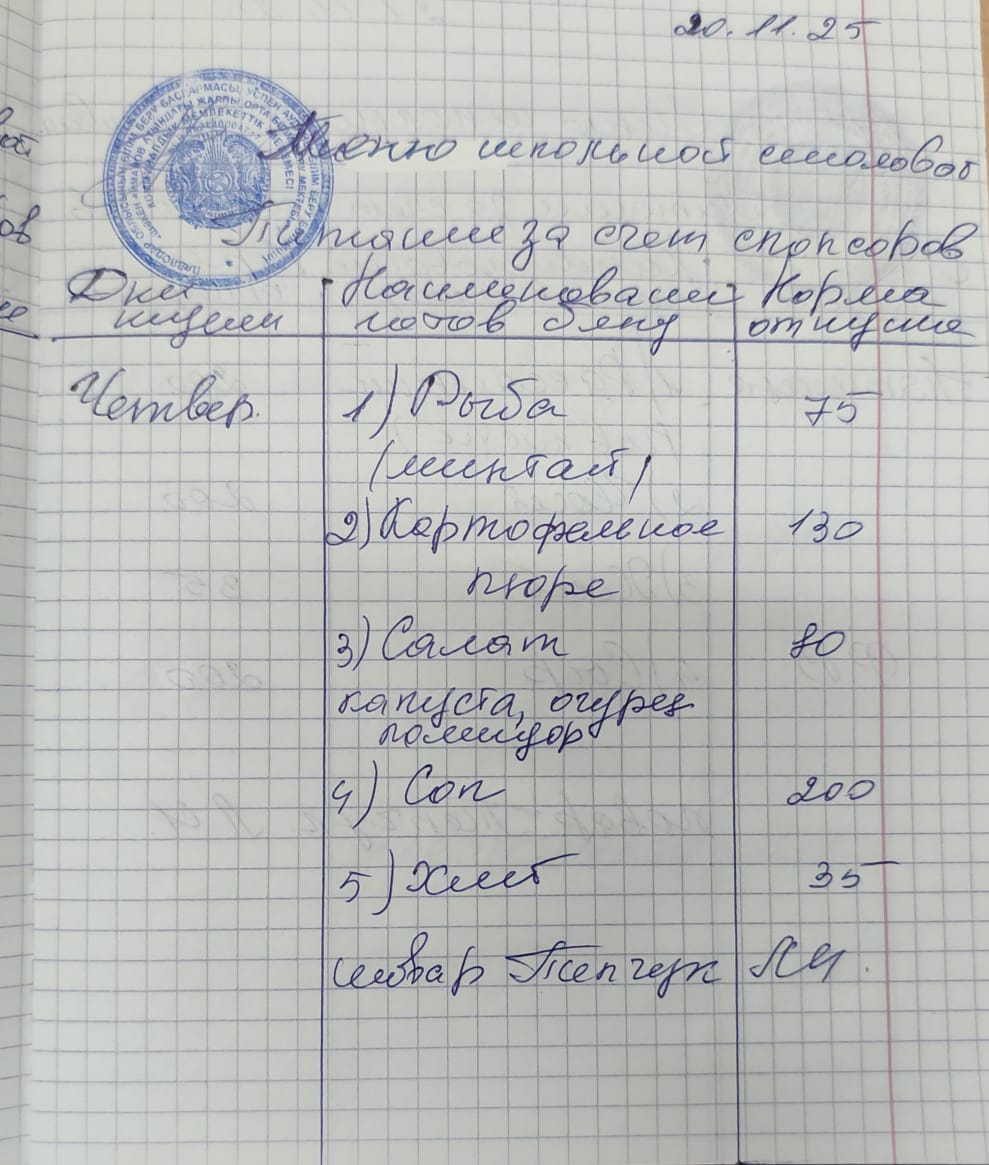 20.11.25
Меню школьной столовой
Питание за счет спонсоров
Дни недели
Наименование готов блюд
Норма отпуска
Четвер.
1) Рыба 75
(минтай)
2) Картофельное 130
пюре
3) Салат 80
капуста, огурец
помидор
4) Сок 200
5) Хлеб 35
повар